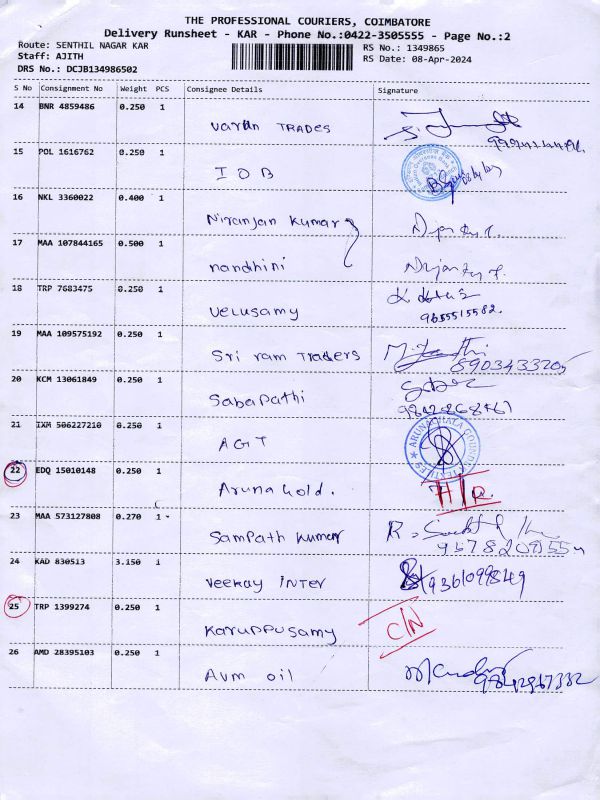 THE PROFESSIONAL COURIERS, COIMBATORE
Delivery Runsheet - KAR - Phone No.:0422-3505555 - Page No.:2
Route: SENTHIL NAGAR KAR
RS No.: 1349865
Staff: AJITH
RS Date: 08-Apr-2024
DRS No.: DCJB134986502
S No Consignment No Weight PCS Consignee Details Signature
14 BNR 4859486 0.250 1 Varan TRADES
15 POL 1616762 0.250 1 IOB
16 NKL 3360022 0.400 1 Niranjan Kumar
17 MAA 107844165 0.500 1 nandhini
18 TRP 7683475 0.250 1 Velusamy
9655515582.
19 MAA 109575192 0.250 1 Sri ram Traders
8903433205
20 KCM 13061849 0.250 1 Sabapathi
21 IXM 506227210 0.250 1 AGT
22 EDQ 15010148 0.250 1 Aruna Gold.
23 MAA 573127808 0.270 1 Sampath Kumar
24 KAD 830513 3.150 1 Veekay INTER
9361099849
25 TRP 1399274 0.250 1 Karuppusamy C/N
26 AMD 28395103 0.250 1 Avm oil
9842967332